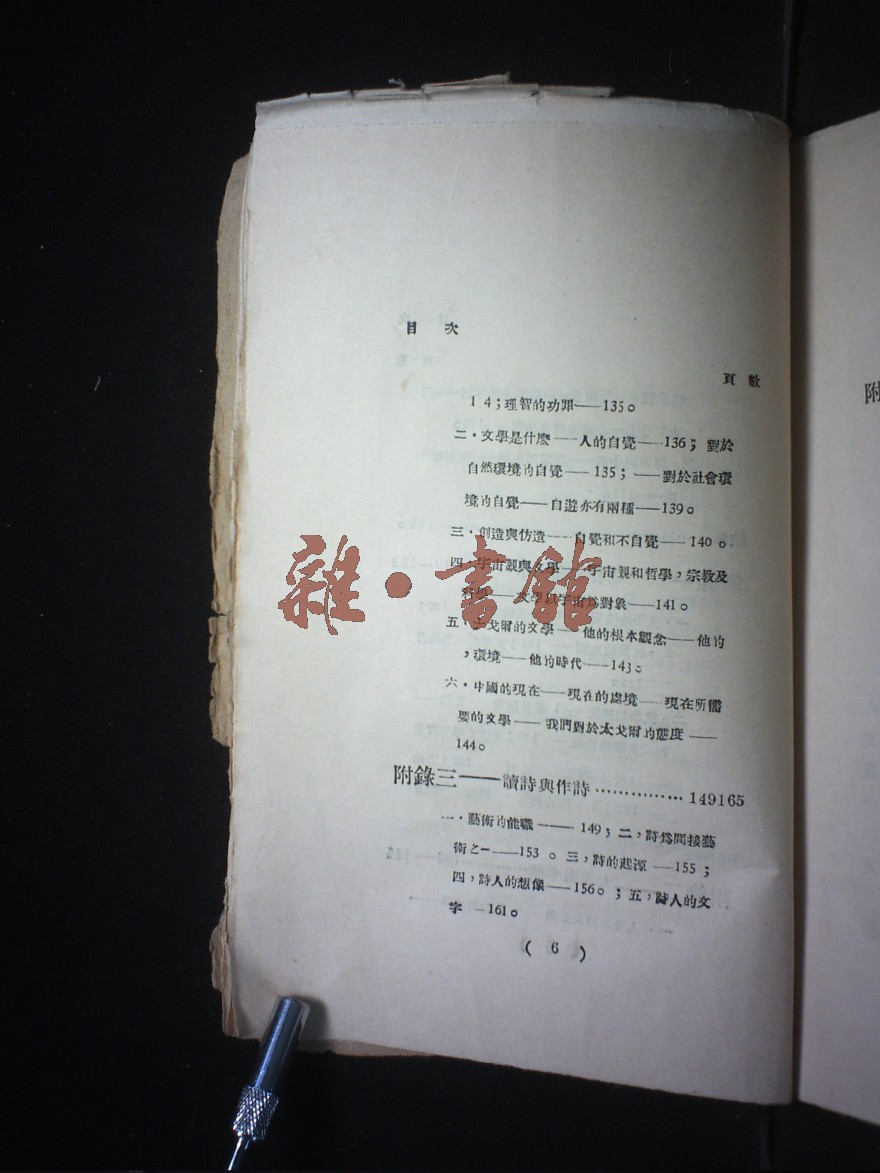 目 次
頁 數
1 4；理智的功罪——135。
二・文學是什麼——人的自覺——136； 對於
自然環境的自覺——135；——對於社會環
境的自覺——自遊亦有兩種——139。
三・創造與仿造——自覺和不自覺——140。
四・宇宙觀與文學——宇宙觀和哲學，宗教及
——文學以宇宙爲對象——141。
五・太戈爾的文學——他的根本觀念——他的
，環境——他的時代——143。
六・中國的現在——現在的處境——現在所需
要的文學——我們對於太戈爾的態度——
144。
附錄三——讀詩與作詩…………… 149165
一・藝術的能職——149；二，詩爲間接藝
術之一——153 。三，詩的起源——155；
四，詩人的想像——156。；五，詩人的文
字—161。
( 6 )
附
雜・書館